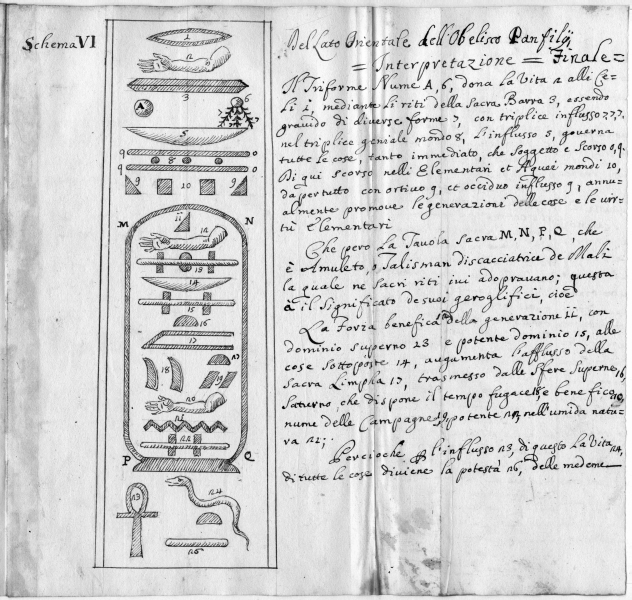 Schema VI
Del Lato Orientale dell'Obelisco Panfilij,
= Interpretazione = Finale =
Il Triforme Nume A, 6, dona La Vita 2 alli Ce-
Li 1 mediante Li riti della Sacra Barra 3, essendo
gravido di diverse forme 7, con triplice influsso 7,7,7,
nel triplice geniale mondo 8, L'influsso 5, governa
tutte le cose, tanto immediato, che soggetto e scorso 0,9.
Di qui scorso nelli Elementari et Aquei mondi 10,
dapertutto con ortivo 9, et occiduo influsso 9, annu-
almente promove le generazioni delle cose e le virt-
tù Elementari
Che pero La Tavola Sacra M, N, P, Q, che
è Amuleto, o Talisman discacciatrice de Mali
la quale ne Sacri riti ivi adopravano; questa
à il Significato de suoi geroglifici, cioè
La Forza benefica della generazione 11, con
dominio superno 23 e potente dominio 15, alle
cose sottoposte 14, augumenta l'afflusso della
Sacra Limpha 17, trasmesso dalle Sfere Superne 16,
Saturno che dispone il tempo fugace 18, e benefico
nume delle Campagne 19, potente 22, nell'umida natu-
ra 21;
Percioche l'influsso 23, di questo La Vita 24,
di tutte le cose diviene la potestà 26, delle medeme
1
2
3
A
6
5
0 8 0
9 9
9 10 9
M N
11
12
13
14
15
16
17
18 17
19
20
21
22
P Q
23 24
26